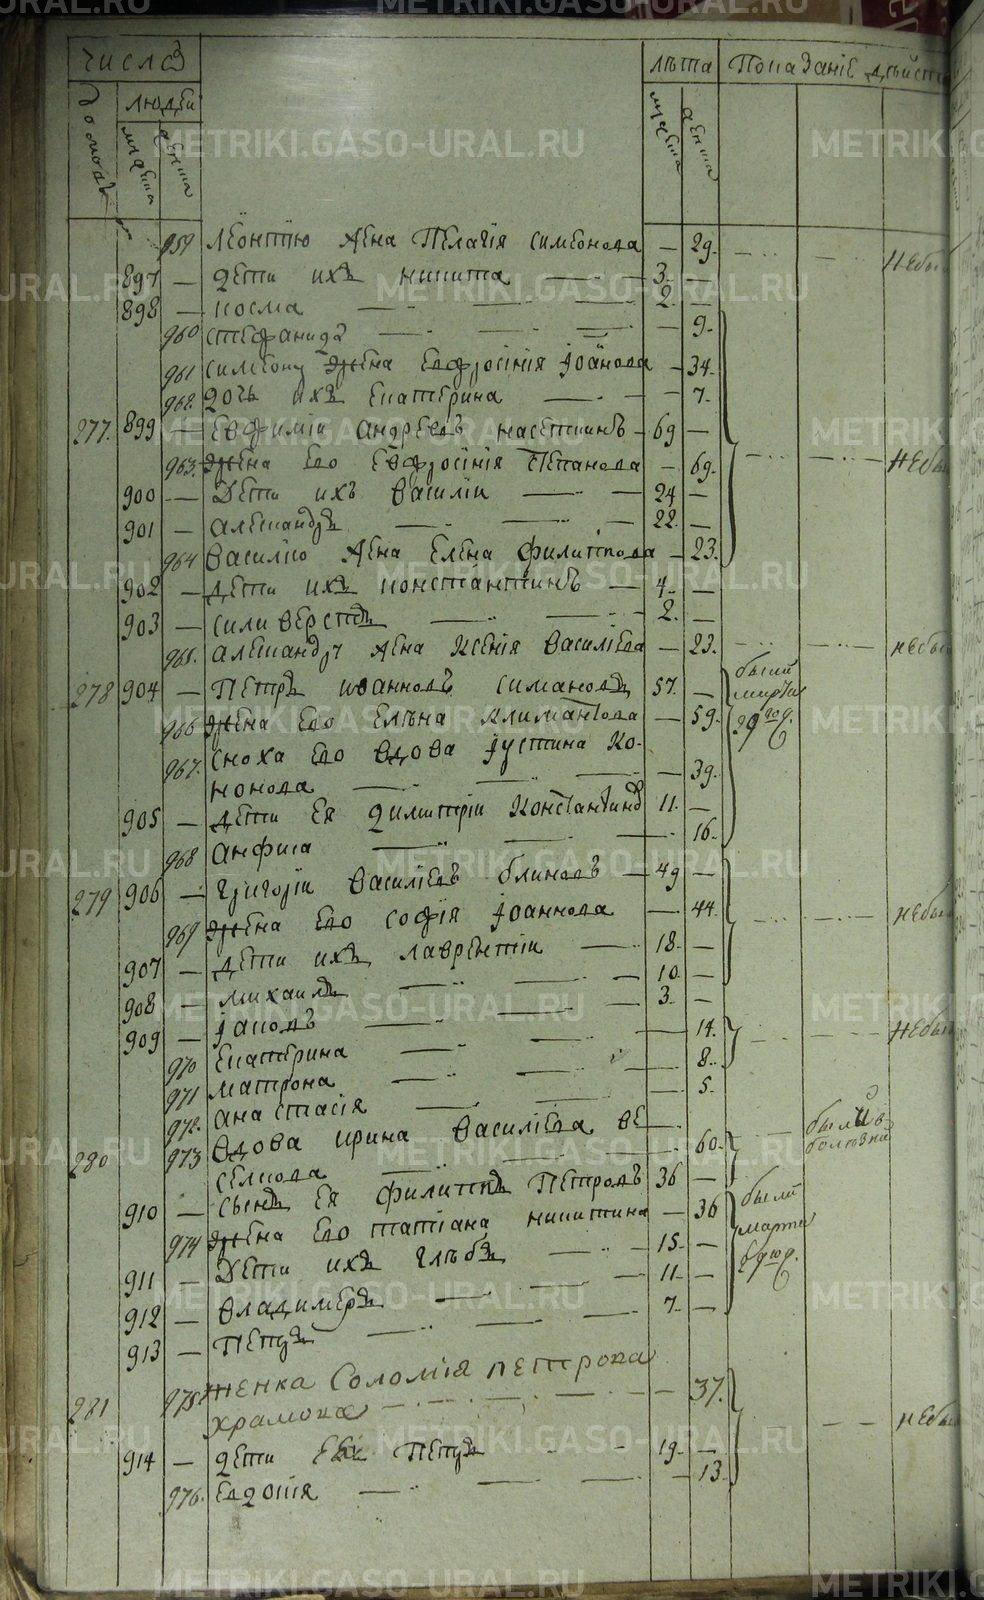 числа
лѣта Показанїе дѣйст
людей
домовъ
мужеска
женска
мужеска
женска
959 Леонтїю жена Пелагїя Симеонова — 29. Небы
897 — дѣти ихъ Никита — 3.
898 — Косма — 2.
960 Стефанида — 9.
961 Симеону жена Евфросінїя Іоаннова — 34.
962. дочь ихъ Екатерина — 7.
277. 899 — Евфимїи Андреевъ Насеткинъ — 69 —
963. жена его Евфросінїя Степанова — 69. Небы
900 — Дѣти ихъ Василїи — 24 —
901 — Александръ — 22. —
964 Василїю жена Елена Филиппова — 23.
902 — дѣти ихъ Константинъ — 4. —
903 — Силиверстъ — 2. —
965. Александру жена Ксенїя Василїева — 23. небы
278 904 — Петръ Иоанновъ Симановъ 57. — были
марта
966 жена его Елѣна Климантова — 59. 29 год.
967. Сноха его вдова Іустина Ко-
нонова — 39.
905 — дѣти ея Димитрїи Константиновъ 11. —
968 Анфиса — 16.
279 906 — Григорїи Василїевъ Блиновъ — 49 —
969 жена его Софїя Іоаннова — 44. небы
907 — дѣти ихъ Лаврентїи — 18 —
908 — Михаилъ — 10. —
909 — Іаковъ — 3. —
970 Екатерина — 14. Небы
971 Матрона — 8.
972. Анастасїя — 5.
280 973 Вдова Ирина Василїева Ве
селкова — 60. были в
910 — сынъ ея Филиппъ Петровъ 36 — были
974 жена его Татїана Никитина — 36 марта
911 — Дѣти ихъ Глѣбъ — 15. —
912 — Владимеръ — 11. —
913 — Петръ — 7. —
281 975 женка Соломїя Петрова
Храмова — 37. небы
914 — дѣти ея Петръ — 19. —
976. Евдокїя — 13.
METRIKI.GASO-URAL.RU